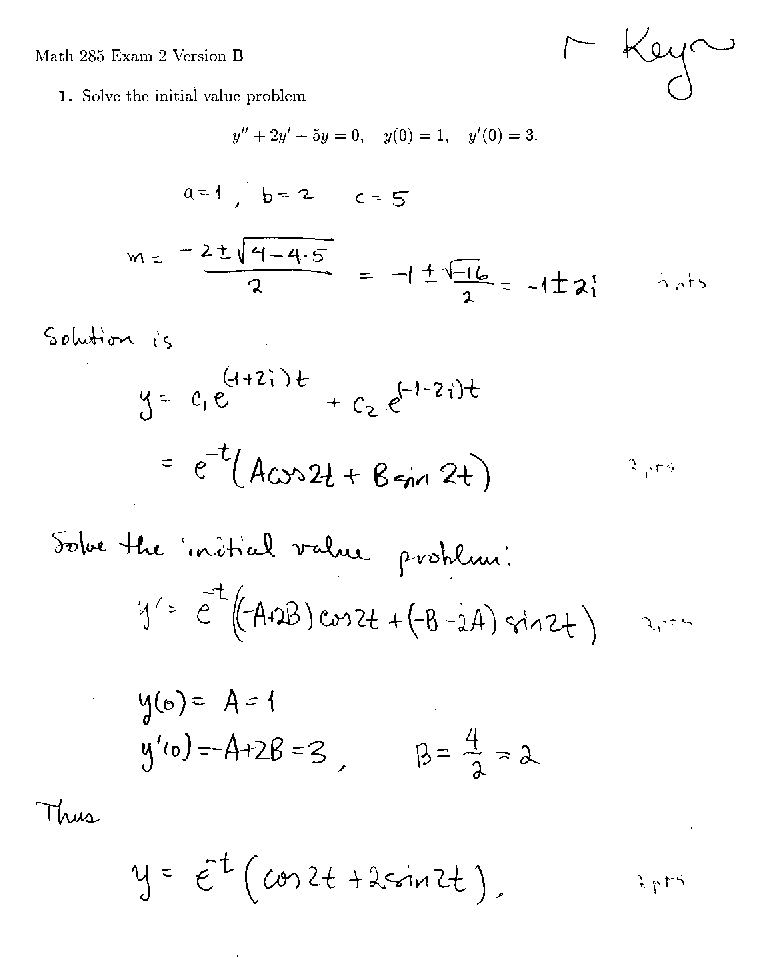 ~ Key ~
Math 285 Exam 2 Version B
1. Solve the initial value problem
y'' + 2y' + 5y = 0, y(0) = 1, y'(0) = 3.
a=1, b=2 c=5
m = (-2±√(4-4·5))/2 = -1 ± √-16/2 = -1±2i pts
Solution is
y = c₁e^(-1+2i)t + c₂e^(-1-2i)t
= e^-t(Acos2t + Bsin 2t) 2 pts
Solve the initial value problem:
y' = e^-t((-A+2B)cos2t + (-B-2A)sin2t)
y(0) = A = 1
y'(0) = -A+2B = 3, B = 4/2 = 2
Thus
y = e^-t(cos2t + 2sin2t). 2 pts